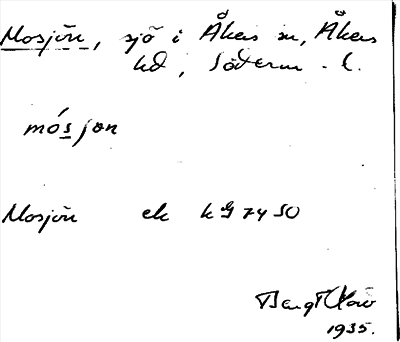 Mosjön, sjö i Åkers sn, Åkers
hd, Söderm. l.
mósjon
Mosjön ek k G 74 SO
Bengt
1935.